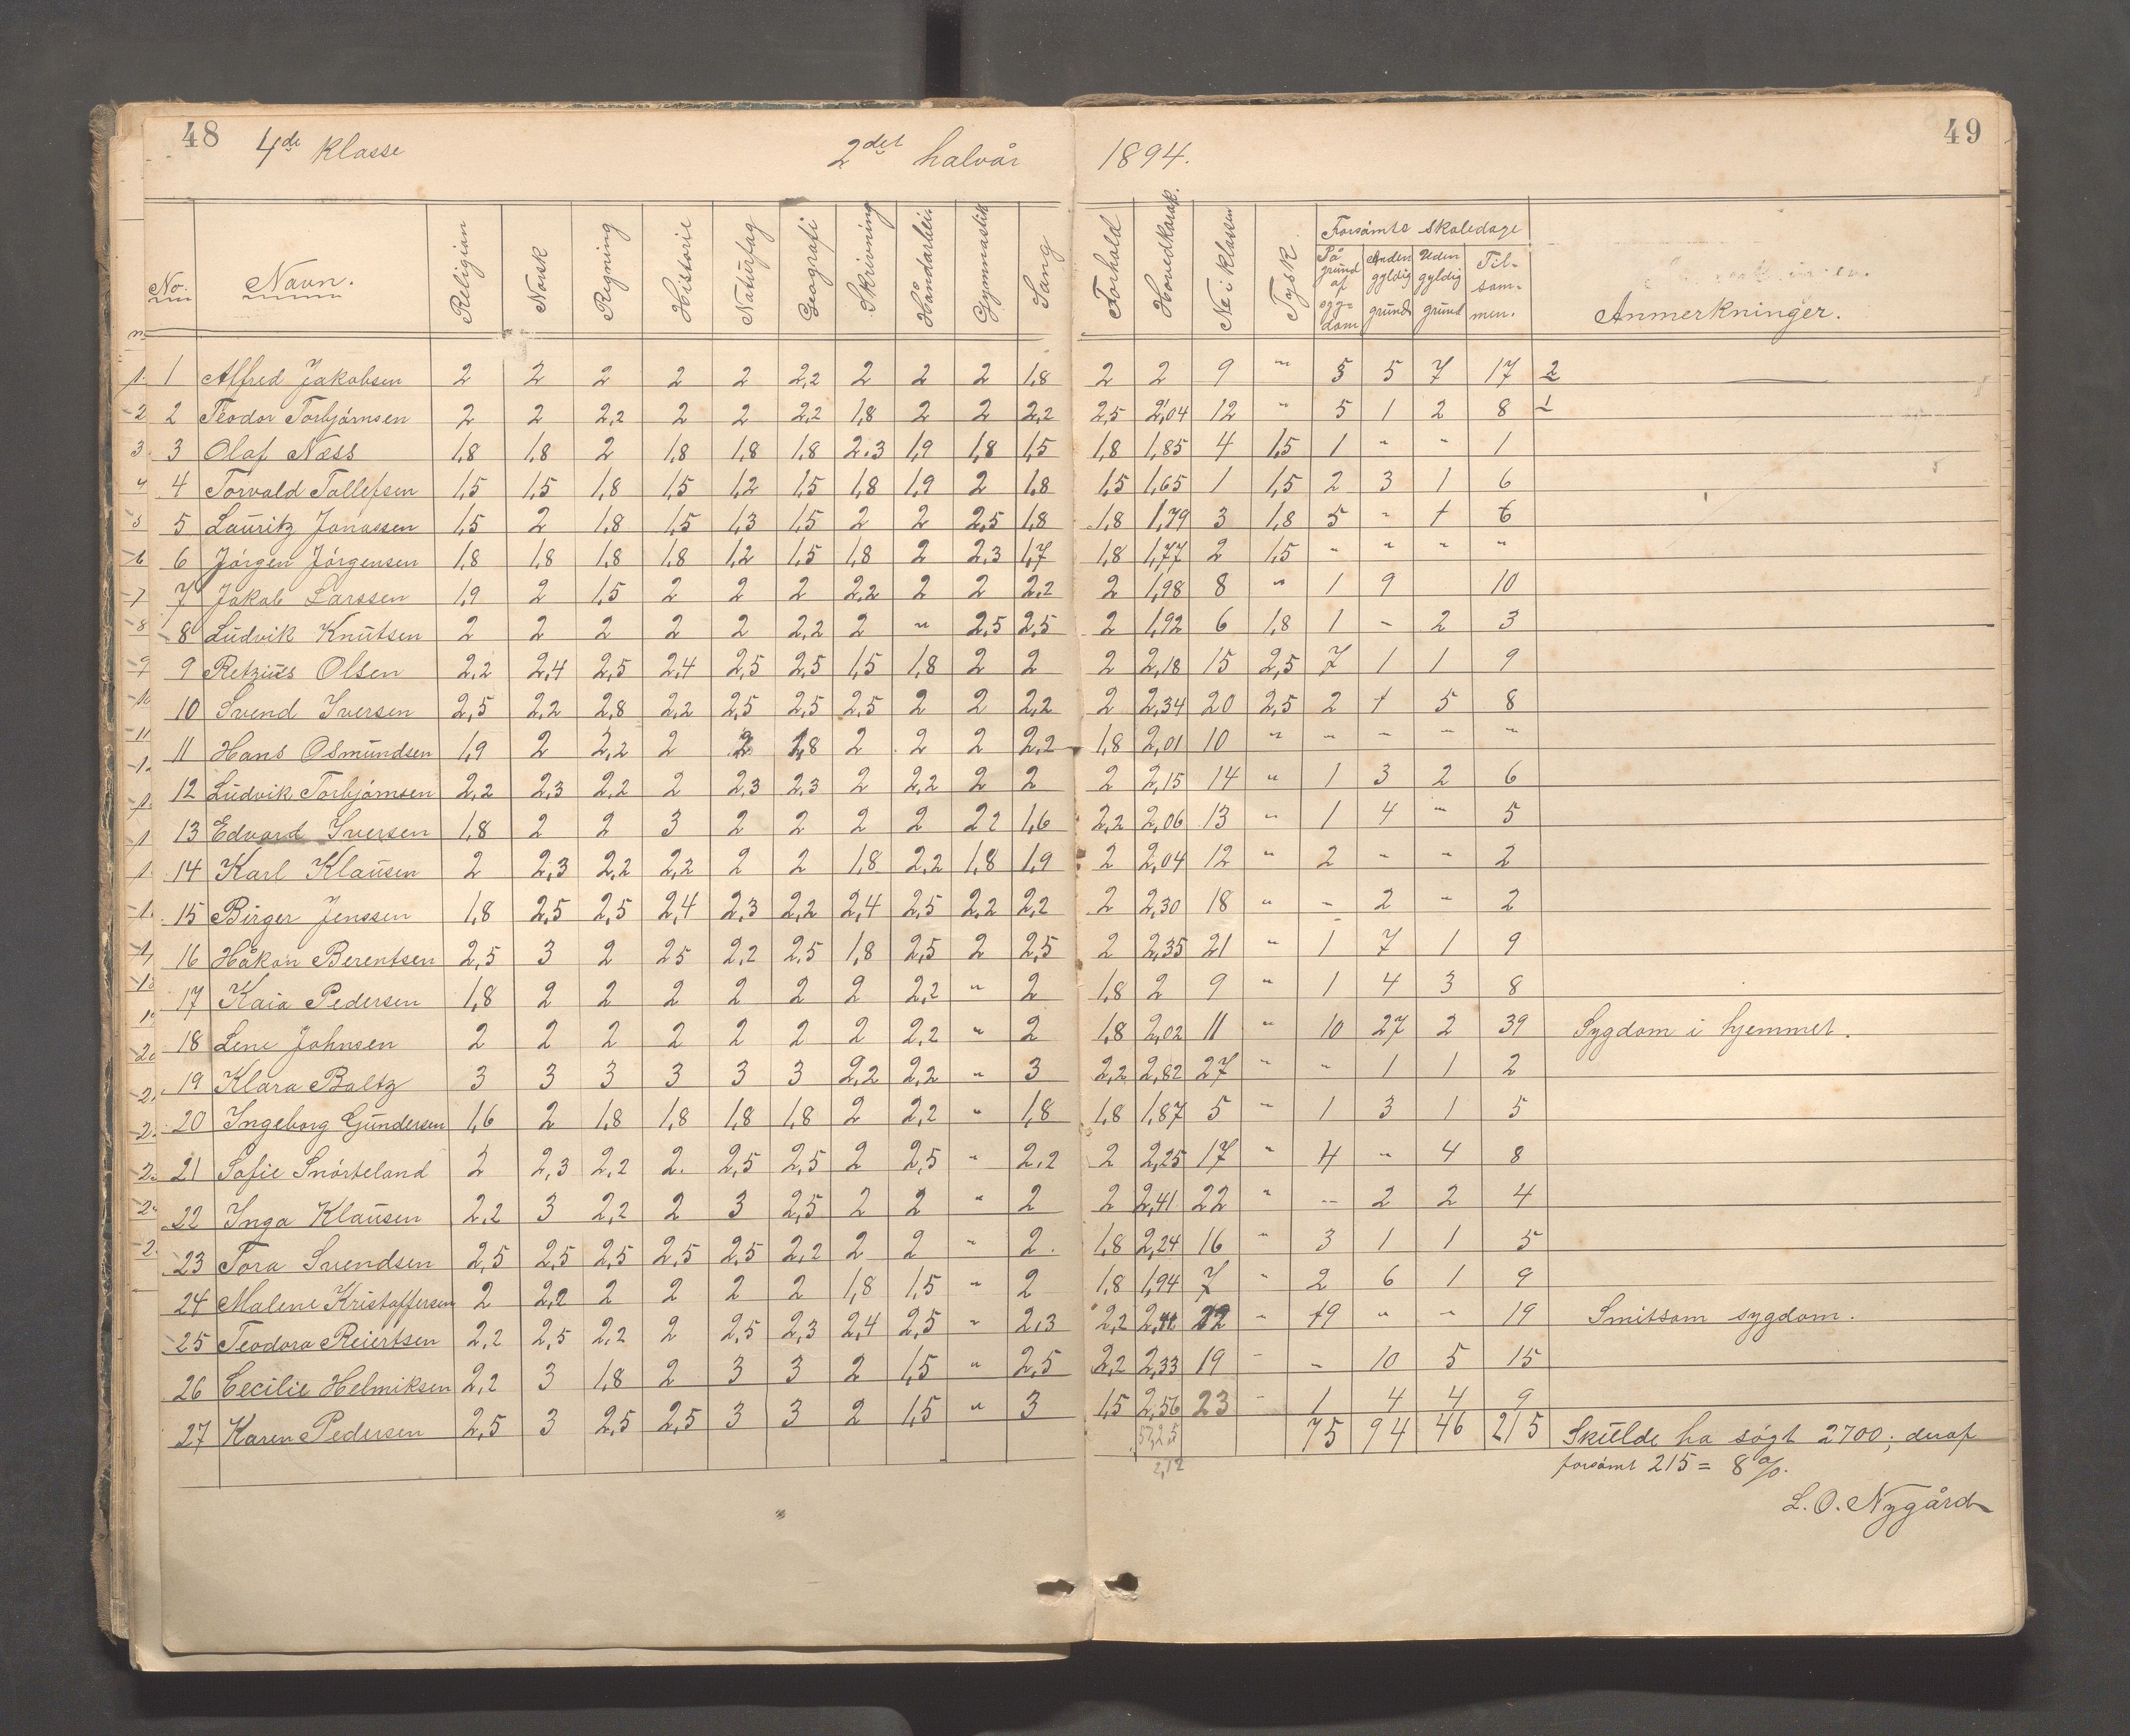 48 4de Klasse 2det halvår 1894. 49
No. Navn. Religion Norsk Regning Historie Naturfag Geografi Skrivning Håndarbeide Gymnastik Sang Forhold Hovedkarak. No i klassen Tysk Forsømte Skoledage Anmerkninger.
På grund af sygdom Anden gyldig grund Uden gyldig grund Tilsammen.
1 Alfred Jakobsen 2 2 2 2 2 2,2 2 2 2 1,8 2 2 9 " 5 5 7 17 2
2 Teodor Torbjørnsen 2 2 2,2 2 2 2,2 1,8 2 2 2,2 2,5 2,04 12 " 5 1 2 8 1
3 Olaf Næss 1,8 1,8 2 1,8 1,8 1,8 2.3 1,9 1,8 1,5 1,8 1,85 4 1,5 1 " " 1
4 Torvald Tollefsen 1,5 1,5 1,8 1,5 1,2 1,5 1,8 1,9 2 1,8 1,5 1,65 1 1,5 2 3 1 6
5 Lauritz Jonassen 1,5 2 1,8 1,5 1,3 1,5 2 2 2,5 1,8 1,8 1,79 3 1,8 5 " 1 6
6 Jørgen Jørgensen 1,8 1,8 1,8 1,8 1,2 1,5 1,8 2 2,3 1,7 1,8 1,77 2 1,5 " " " "
7 Jakob Larssen 1,9 2 1,5 2 2 2 2,2 2 2 2,2 2 1,98 8 " 1 9 10
8 Ludvik Knutsen 2 2 2 2 2 2,2 2 " 2,5 2,5 2 1,92 6 1,8 1 - 2 3
9 Retzius Olsen 2,2 2,4 2,5 2,4 2,5 2,5 1,5 1,8 2 2 2 2,18 15 2,5 7 1 1 9
10 Svend Iversen 2,5 2,2 2,8 2,2 2,5 2,5 2,5 2 2 2,2 2 2,34 20 2,5 2 1 5 8
11 Hans Osmundsen 1,9 2 2,2 2 2 1,8 2 2 2 2,2 1,8 2,01 10 " " " " "
12 Ludvik Torbjørnsen 2,2 2,3 2,2 2 2,3 2,3 2 2,2 2 2 2 2,15 14 " 1 3 2 6
13 Edvard Iversen 1,8 2 2 3 2 2 2 2 22 1,6 2,2 2,06 13 " 1 4 " 5
14 Karl Klausen 2 2,3 2,2 2,2 2 2 1,8 2,2 1,8 1,9 2 2,04 12 " 2 " " 2
15 Birger Jenssen 1,8 2,5 2,5 2,4 2,3 2,2 2,4 2,5 2,2 2,2 2 2,30 18 " " 2 " 2
16 Håkon Berentsen 2,5 3 2 25 2,2 2,5 1,8 2,5 2 2,5 2 2,35 21 " 1 7 1 9
17 Kaia Pedersen 1,8 2 2 2 2 2 2 2,2 " 2 1,8 2 9 " 1 4 3 8
18 Lene Johnsen 2 2 2 2 2 2 2 2,2 " 2 1,8 2,02 11 " 10 27 2 39 Sygdom i hjemmet.
19 Klara Baltz 3 3 3 3 3 3 2,2 2,2 " 3 2,2 2,82 27 " " 1 1 2
20 Ingeborg Gundersen 1,6 2 1,8 1,8 1,8 1,8 2 2,2 " 1,8 1,8 1,87 5 " 1 3 1 5
21 Sofie Snørteland 2 2,3 2,2 2. 2,5 2,5 2 2,5 " 2,2 2 2,25 17 " 4 " 4 8
22 Inga Klausen 2,2 3 2,2 2 3 2,5 2 2 " 2 2 2,41 22 " -- 2 2 4
23 Tora Svendsen 2,5 2,5 2,5 2,5 2,5 2,2 2 2 " 2. 1,8 2,24 16 " 3 1 1 5
24 Malene Kristoffersen 2 2,2 2 2 2 2 1,8 1,5 " 2 1,8 1,94 7 " 2 6 1 9
25 Teodora Reiertsen 2,2 2,5 2,2 2 2,5 2,3 2,4 2,5 " 2,3 2,2 2,41 22 " 19 " " 19 Smitsom sygdom.
26 Cecilie Helmiksen 2,2 3 1,8 2 3 3 2 1,5 " 2,5 2,2 2,33 19 - - 10 5 15
27 Karen Pedersen 2,5 3 2,5 2,5 3 3 2 1,5 " 3 1,5 2,56 23 - 1 4 4 9
75 94 46 215 Skulde ha søgt 2700; deraf
2,12 forsømt 215 = 8 %.
L. O. Nygård